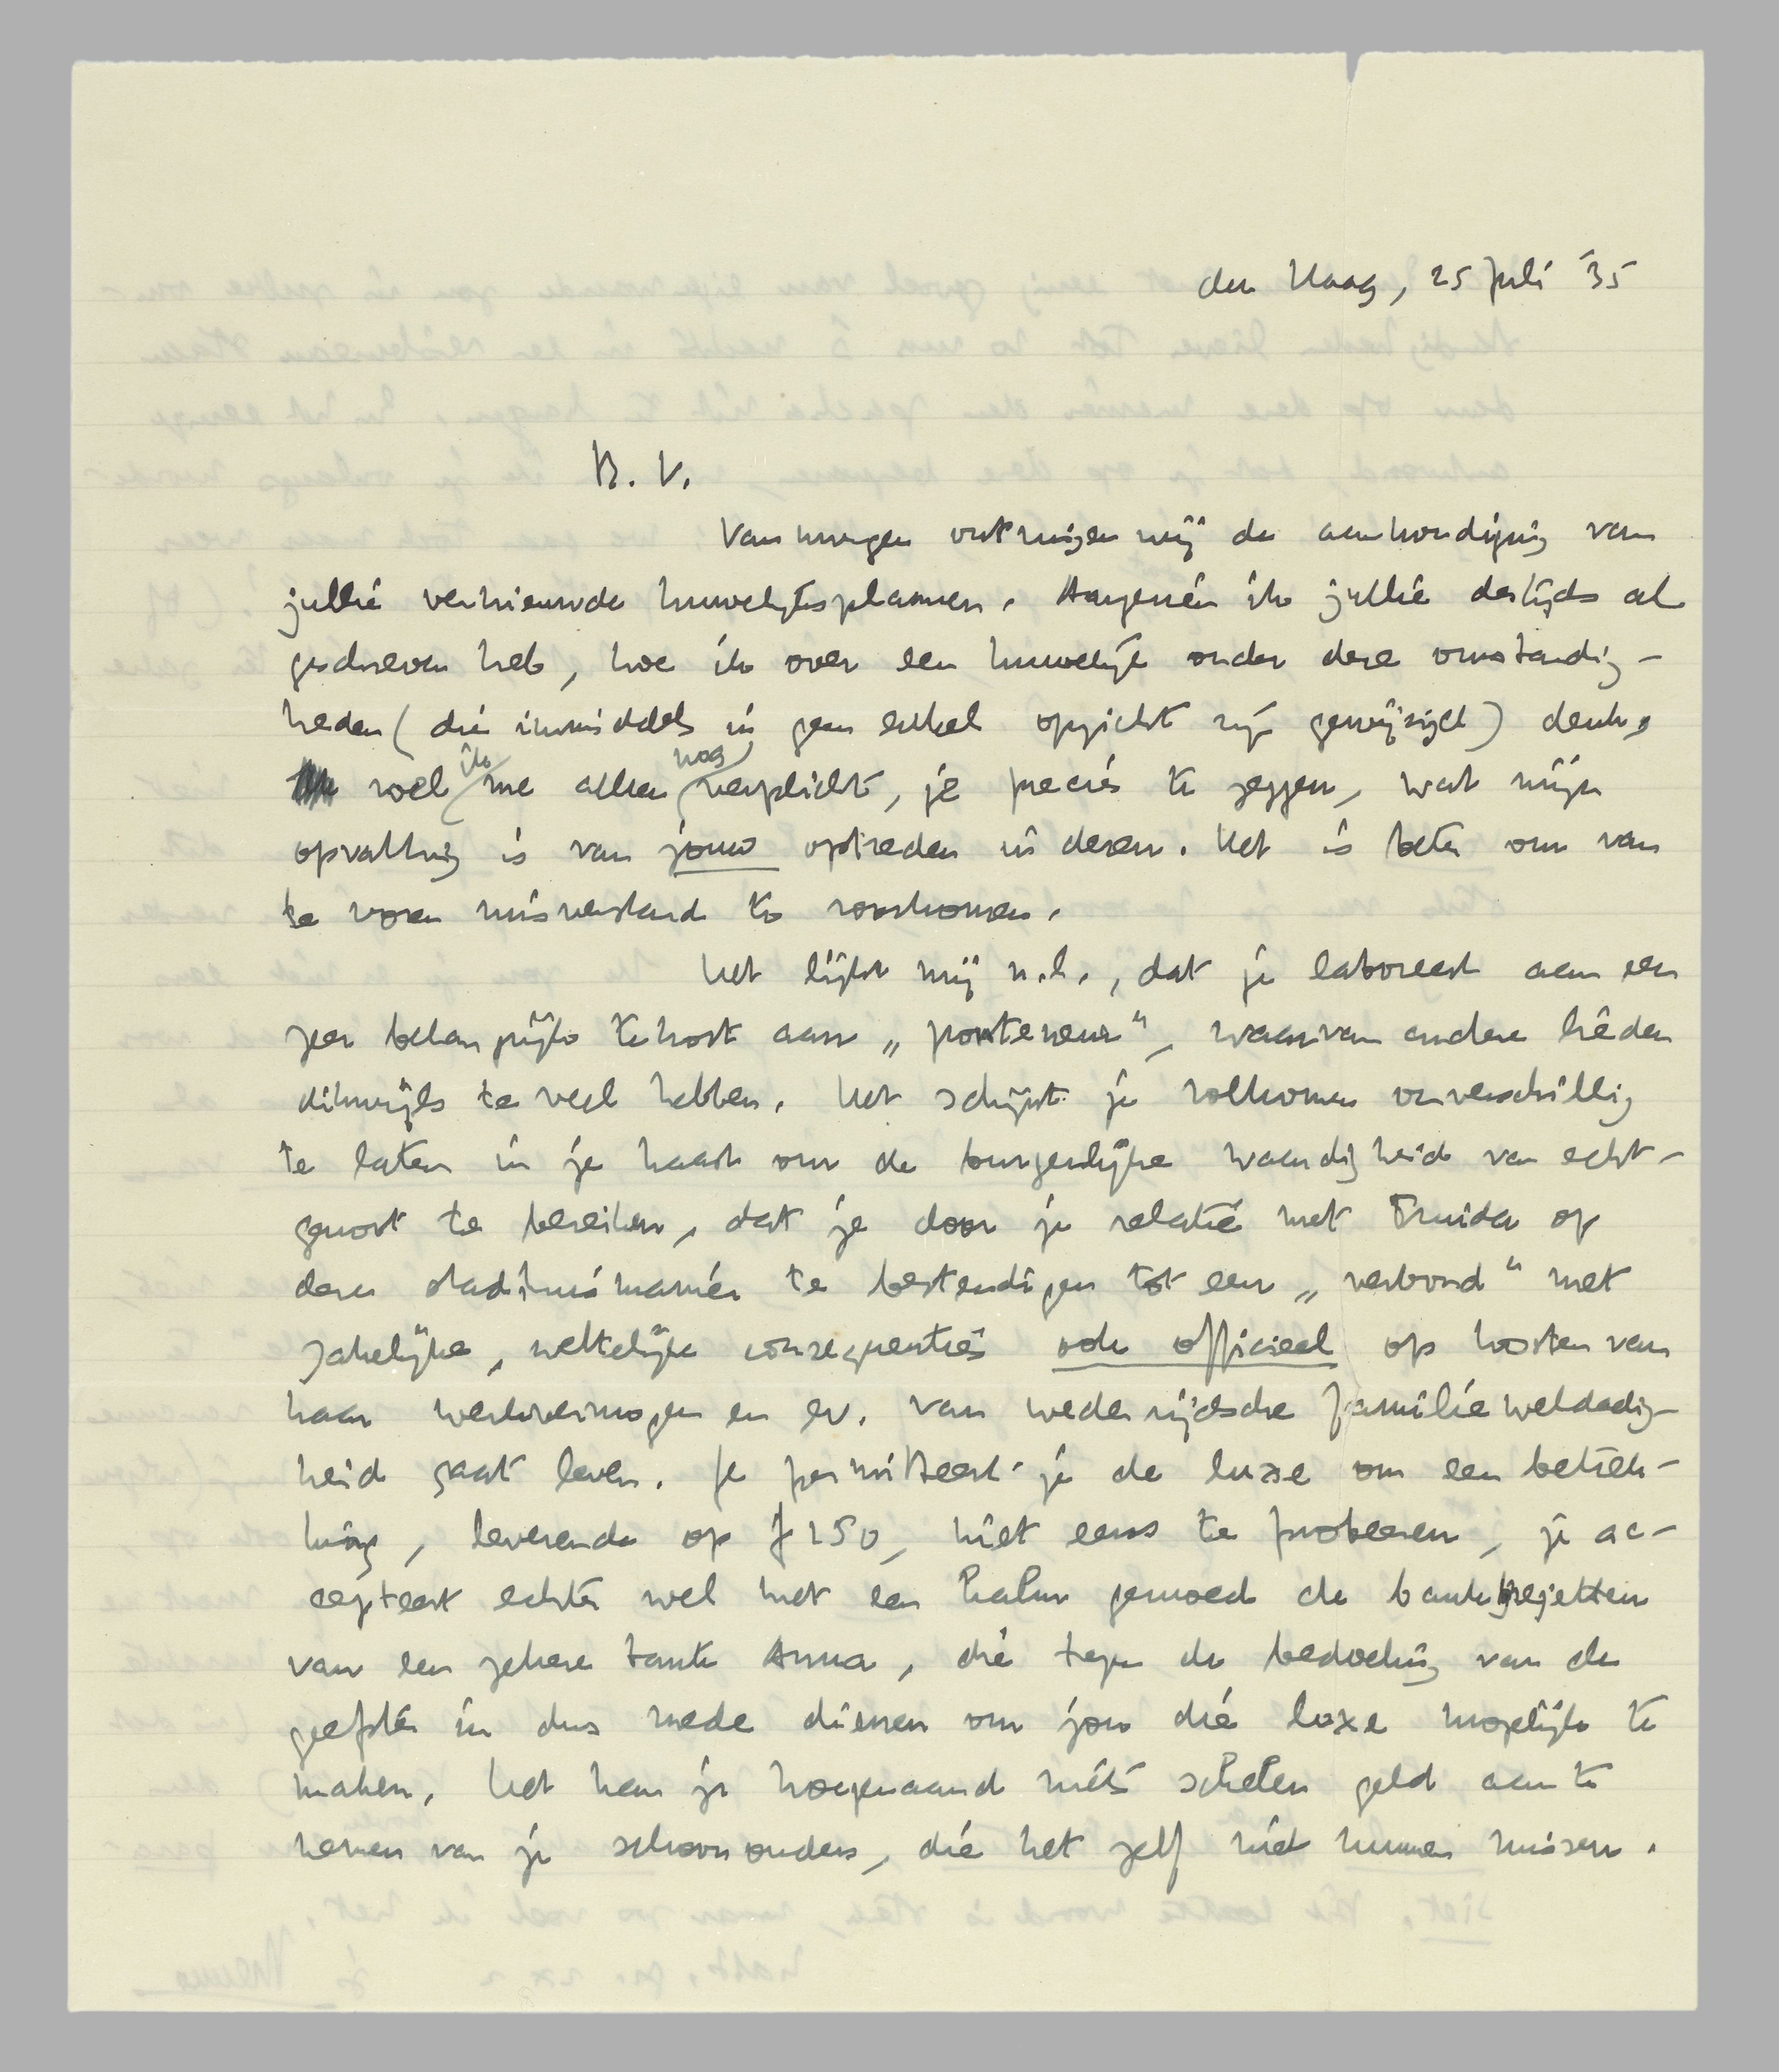 den Haag, 25 Juli '35
B. V.
Vanmorgen ontvingen wij de aankondiging van
jullie vernieuwde huwelijksplannen. Aangezien ik jullie destijds al
geschreven heb, hoe ik over een huwelijk onder deze omstandig-
heden (die inmiddels in geen enkel opzicht zijn gewijzigd) denk,
voel ik me alleen nog verplicht, je precies te zeggen, wat mijn
opvatting is van jouw optreden in dezen. Het is beter om van
te voren misverstand te voorkomen.
Het lijkt mij n.l., dat je laboreert aan een
zeer belangrijk tekort aan „porteneur", waarvan andere lieden
dikwijls te veel hebben. Het schijnt je volkomen onverschillig
te laten in je haast om de burgerlijke waardigheid van echt-
genoot te bereiken, dat je door je relatie met Truida op
deze stadhuismanier te bestendigen tot een „verbond" met
zakelijke, wettelijke consequenties ook officieel op kosten van
haar werkvermogen en ev. van wederzijdsche familieweldadig-
heid gaat leven. Je permitteert je de luxe om een betrek-
king, leverende op ƒ 150, niet eens te probeeren, je ac-
cepteert echter wel met een kalm gemoed de bankbiljetten
van een zekere tante Anna, die tegen de bedoeling van de
geefster in dus mede dienen om jou die luxe mogelijk te
maken. Het kan je hoegenaamd niets schelen geld aan te
nemen van je schoonouders, die het zelf niet kunnen missen.